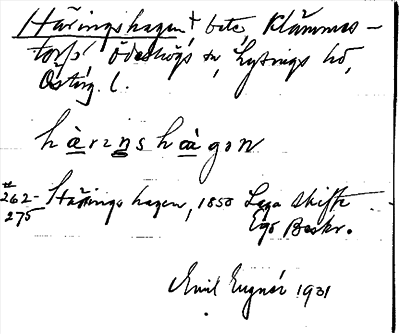 Häringshagen † bete, Klämmes-
torp, Ödeshögs sn, Lysings hd,
Östg. l.
hàrıŋshàgən
#262-275 Häringshagen, 1850 Laga skifte
Ego Beskr.
Emil Eugnér 1931